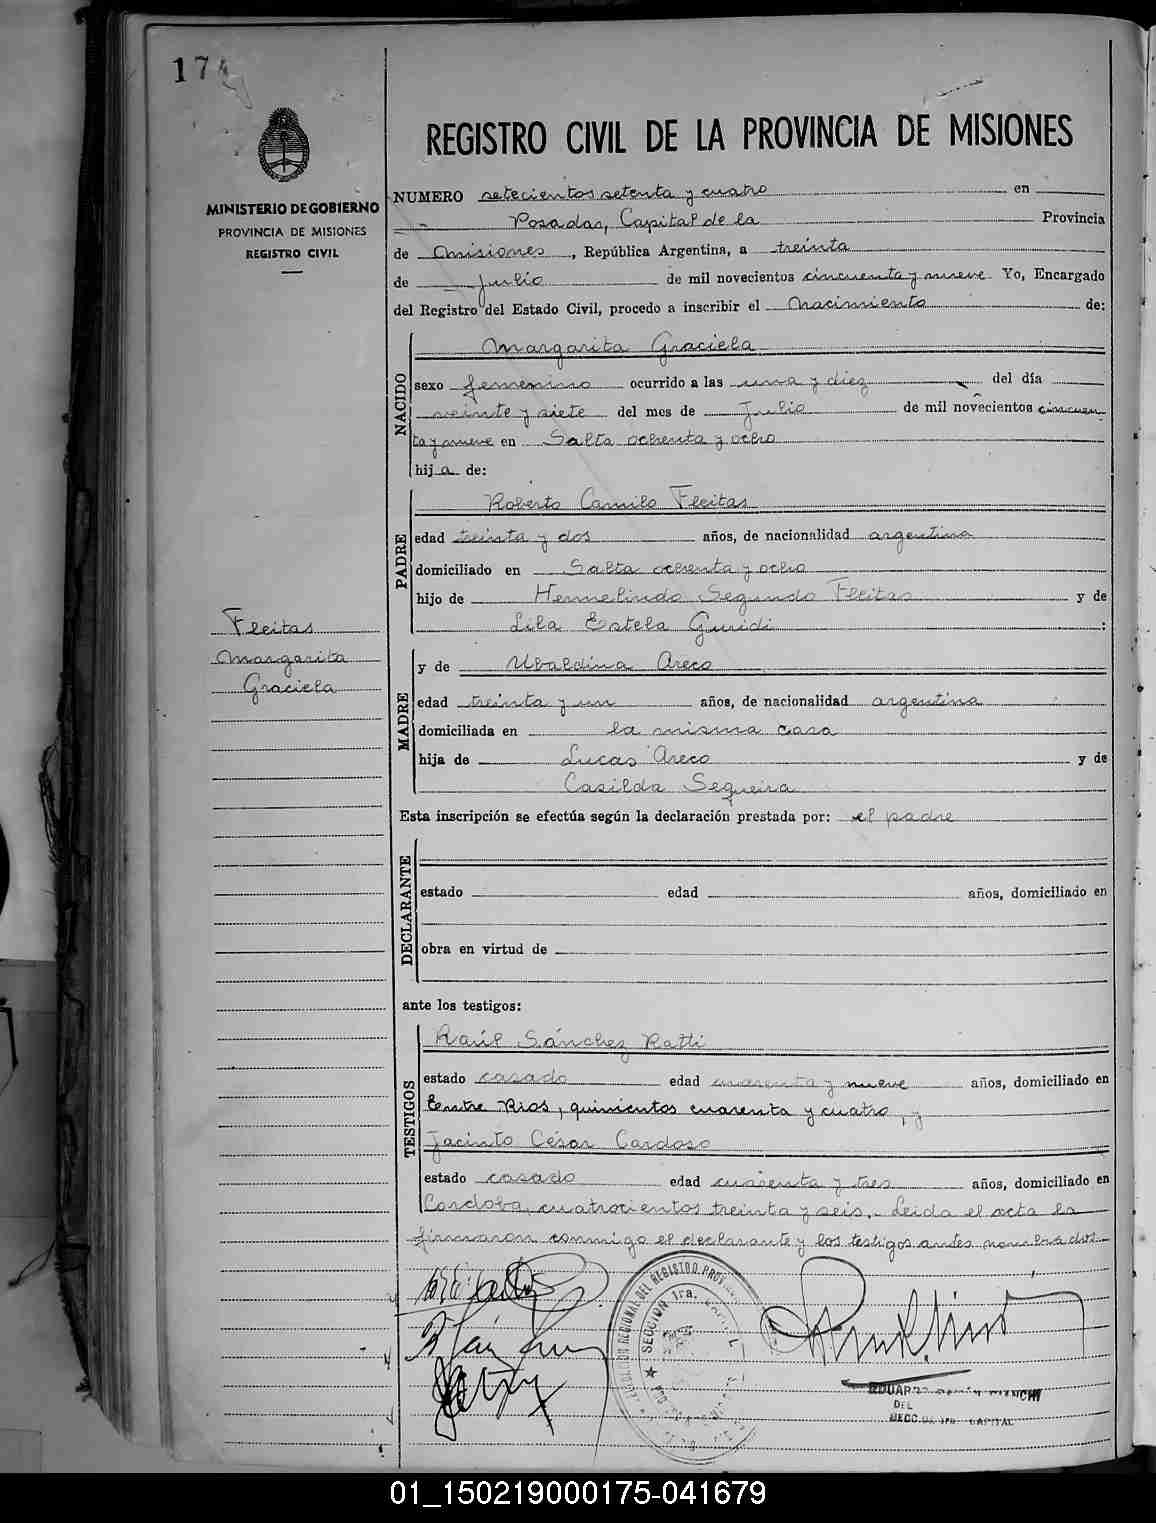 174
MINISTERIO DE GOBIERNO
PROVINCIA DE MISIONES
REGISTRO CIVIL
Fleitas
Margarita
Graciela
REGISTRO CIVIL DE LA PROVINCIA DE MISIONES
NUMERO setecientos setenta y cuatro en
Posadas, Capital de la Provincia
de Misiones, República Argentina, a treinta
de Julio de mil novecientos cincuenta y nueve Yo, Encargado
del Registro del Estado Civil, procedo a inscribir el Nacimiento de:
NACIDO
Margarita Graciela
sexo femenino ocurrido a las una y diez del día
veinte y siete del mes de Julio de mil novecientos cincuen
ta y nueve en Salta ochenta y ocho
hija de:
PADRE
Roberto Camilo Fleitas
edad treinta y dos años, de nacionalidad argentina
domiciliado en Salta ochenta y ocho
hijo de Hermelindo Segundo Fleitas y de
Lila Estela Guridi :
MADRE
y de Ubaldina Areco
edad treinta y un años, de nacionalidad argentina
domiciliada en la misma casa
hija de Lucas Areco y de
Casilda Sequeira
Esta inscripción se efectúa según la declaración prestada por: el padre
DECLARANTE
estado edad años, domiciliado en
obra en virtud de
ante los testigos:
TESTIGOS
Raúl Sánchez Ratti
estado casado edad cuarenta y nueve años, domiciliado en
Entre Rios, quinientos cuarenta y cuatro, y
Jacinto César Cardoso
estado casado edad cuarenta y tres años, domiciliado en
Cordoba, cuatrocientos treinta y seis.- Leida el acta la
firmaron conmigo el declarante y los testigos antes nombrados-
DIRECCION REGIONAL DEL REGISTRO PROV
SECCION 1ra.
EDUARDO RAMÓN BIANCHI
DEL
SECC. DE 1ra CAPITAL
01_150219000175-041679